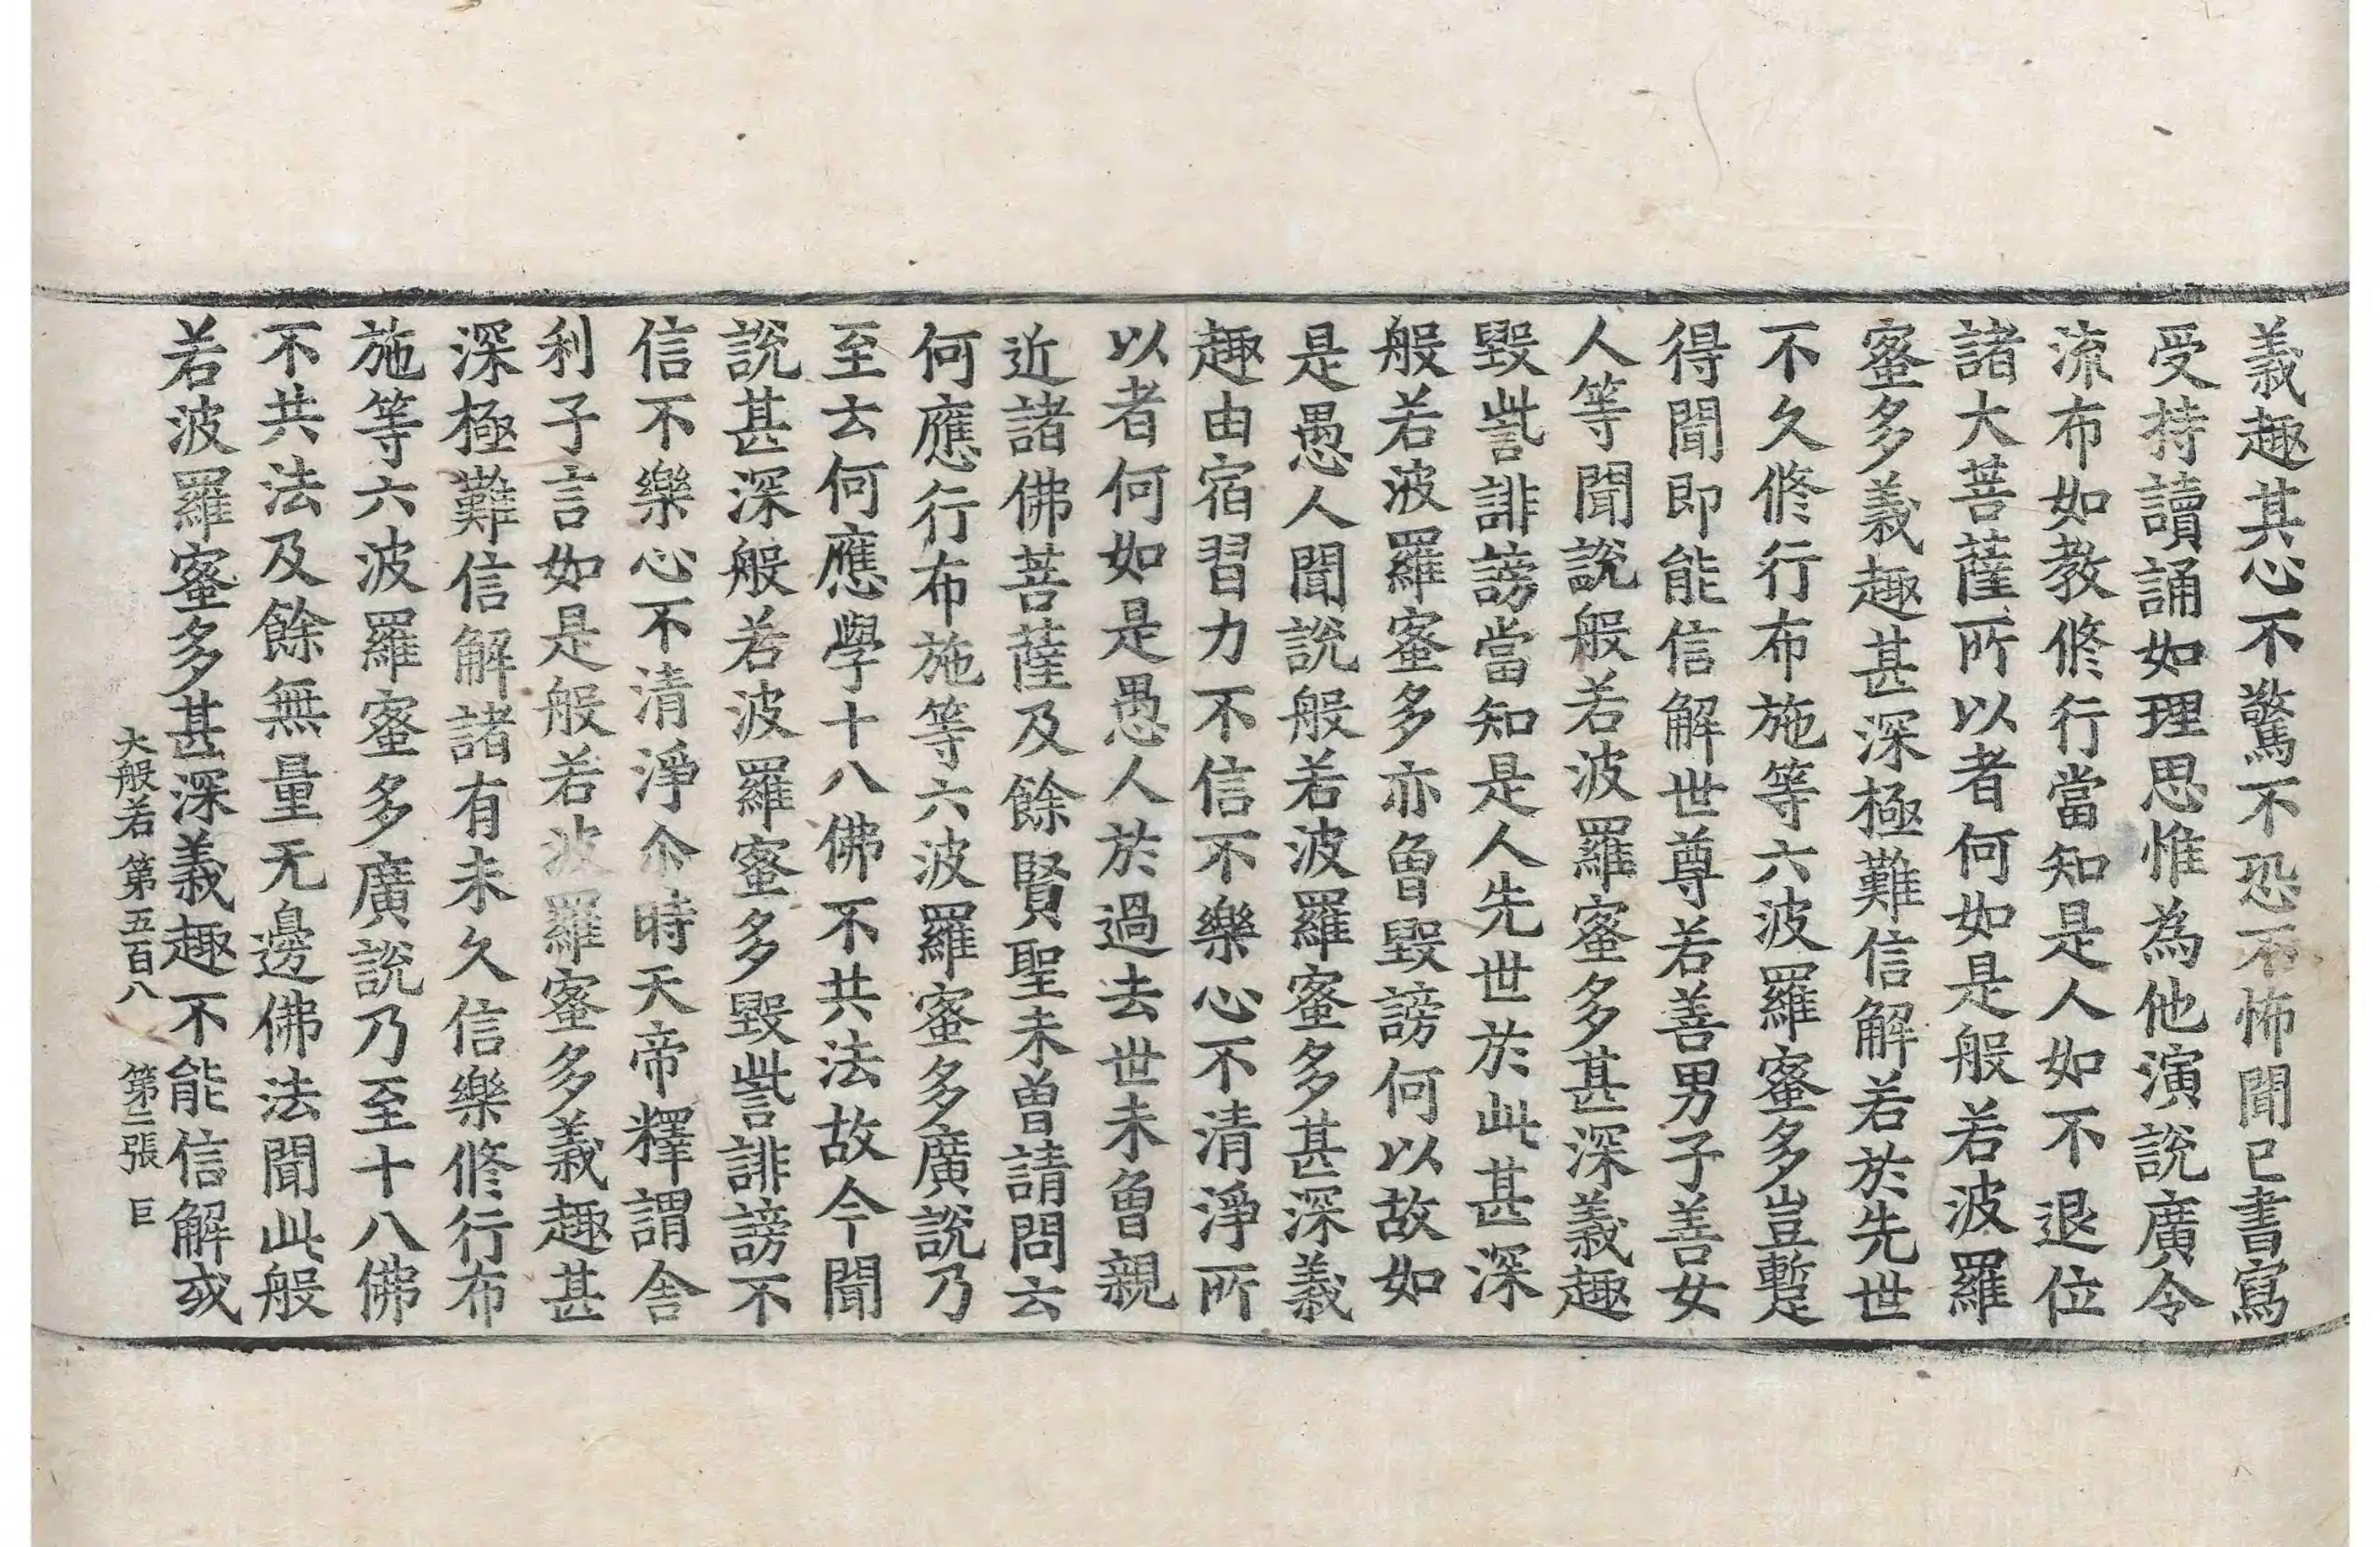 義趣其心不驚不恐不怖聞已書寫
受持讀誦如理思惟為他演說廣令
流布如教修行當知是人如不退位
諸大菩薩所以者何如是般若波羅
蜜多義趣甚深極難信解若於先世
不久修行布施等六波羅蜜多豈蹔
得聞即能信解世尊若善男子善女
人等聞說般若波羅蜜多甚深義趣
毀訾誹謗當知是人先世於此甚深
般若波羅蜜多亦曾毀謗何以故如
是愚人聞說般若波羅蜜多甚深義
趣由宿習力不信不樂心不清淨所
以者何如是愚人於過去世未曾親
近諸佛菩薩及餘賢聖未曾請問云
何應行布施等六波羅蜜多廣說乃
至云何應學十八佛不共法故今聞
說甚深般若波羅蜜多毀訾誹謗不
信不樂心不清淨尒時天帝釋謂舍
利子言如是般若波羅蜜多義趣甚
深極難信解諸有未久信樂修行布
施等六波羅蜜多廣說乃至十八佛
不共法及餘無量无邊佛法聞此般
若波羅蜜多甚深義趣不能信解或
大般若第五百八 第二張 巨